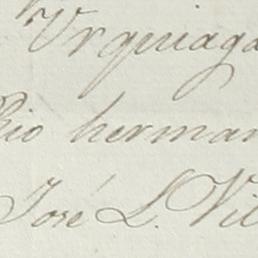 Urquiaga
Pio herman
José L. Vil